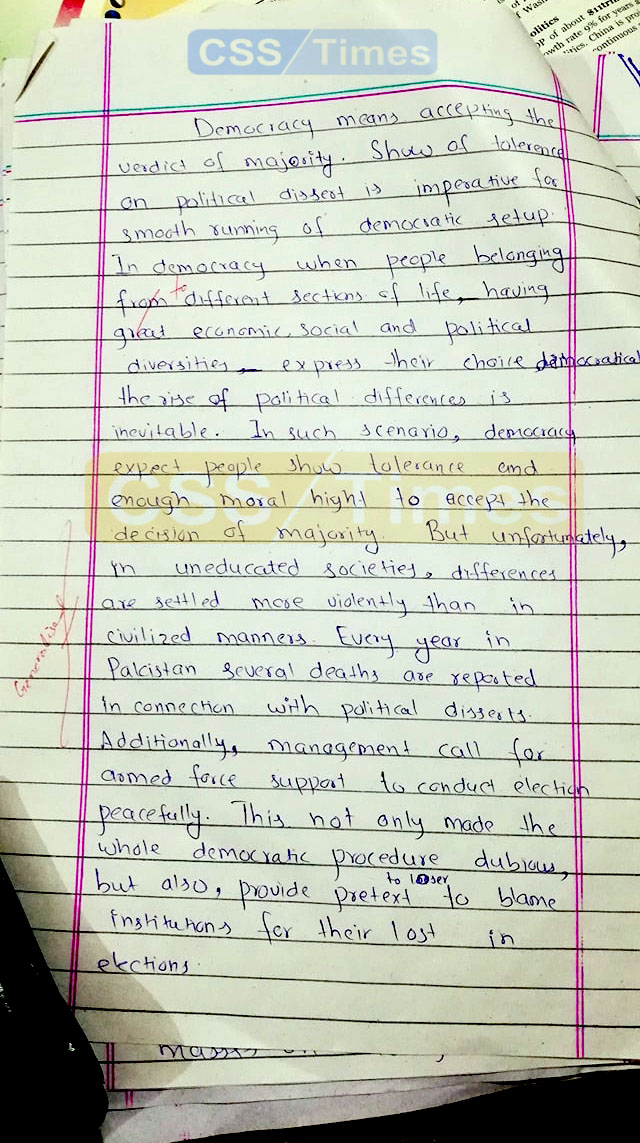 olitics
of Wash
OP of about $11tri
wth rate 9% for years
tics. China is proj
continuous
CSS/Times
Democracy means accepting the
verdict of majority. Show of tolerence
on political dissert is imperative for
smooth running of democratic setup.
In democracy when people belonging
from to different sections of life, having
great economic, social and political
diversities, express their choice democratical
the rise of political differences is
inevitable. In such scenario, democracy
expect people show tolerance and
CSS/Times
enough moral hight to accept the
decision of majority. But unfortunately,
in uneducated societies, differences
are settled more violently than in
Generalised
civilized manners. Every year in
Pakistan several deaths are reported
in connection with political disserts.
Additionally, management call for
armed force support to conduct election
peacefully. This not only made the
whole democratic procedure dubious,
but also, provide pretext to looser to blame
institutions for their lost in
elections.
masses